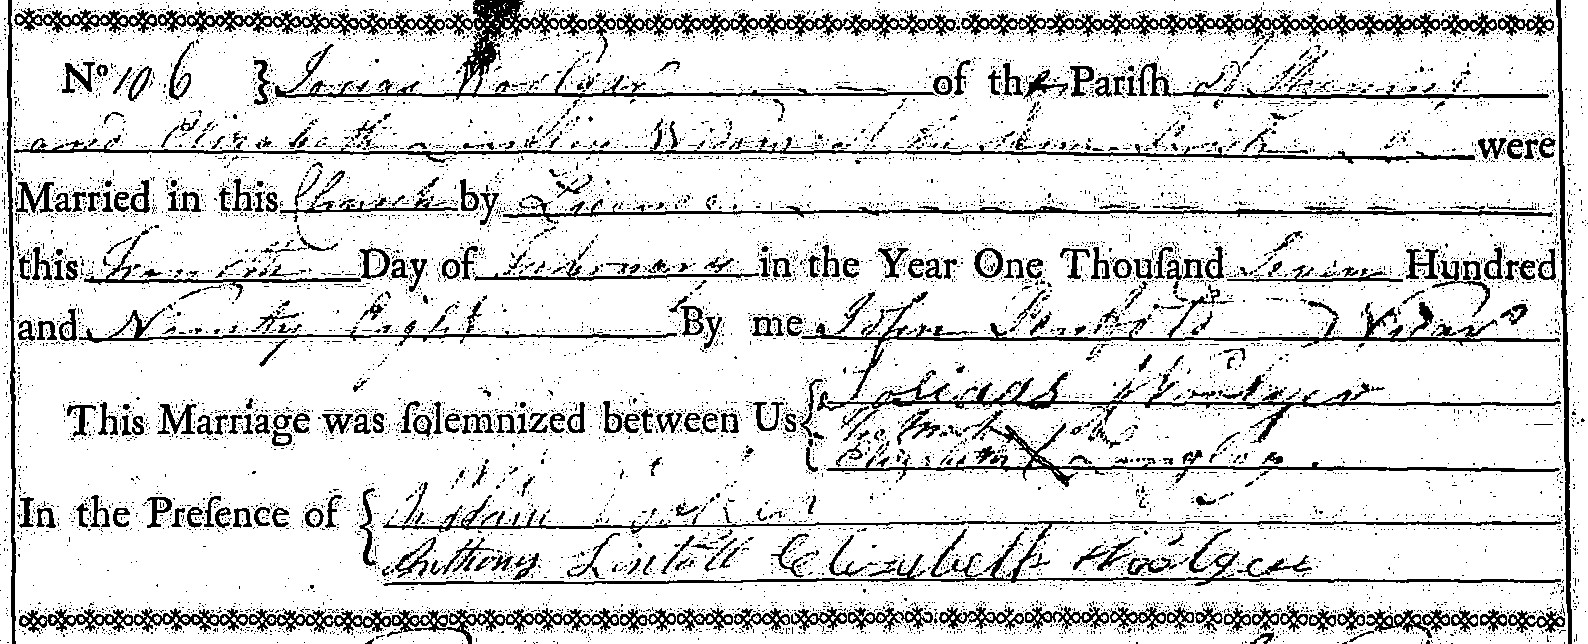 No 106 } Josias Woolger of the Parish St Thomas
and Elizabeth Widow of the same Parish were
Married in this Church by Licence
this Day of February in the Year One Thouſand Seven Hundred
and Ninety Eight By me John Vicar
This Marriage was ſolemnized between Us { Josiaas Woolger
The Mark of
Elizabeth X Langley
In the Preſence of { William
Anthony Lintott Elizabeth Woolger